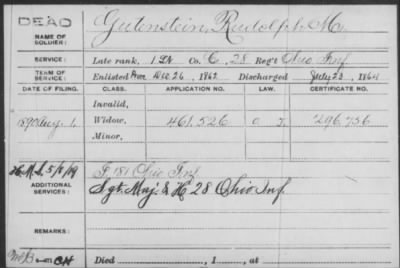 DEAD
NAME OF SOLDIER: Gutenstein, Rudolph M.
SERVICE: Late rank, 1 Lt Co. C, 28 Reg't Ohio Inf.
TERM OF SERVICE: Enlisted Dec. 26, 1862 Discharged July 23, 1864
DATE OF FILING. CLASS. APPLICATION NO. LAW. CERTIFICATE NO.
Invalid,
1890 Aug. 1. Widow, 461.526 296.756
Minor,
5/8/19 F, 181 Ohio Inf
ADDITIONAL SERVICES: Sgt. Maj. & H 28 Ohio Inf.
REMARKS:
Died , 1 , at